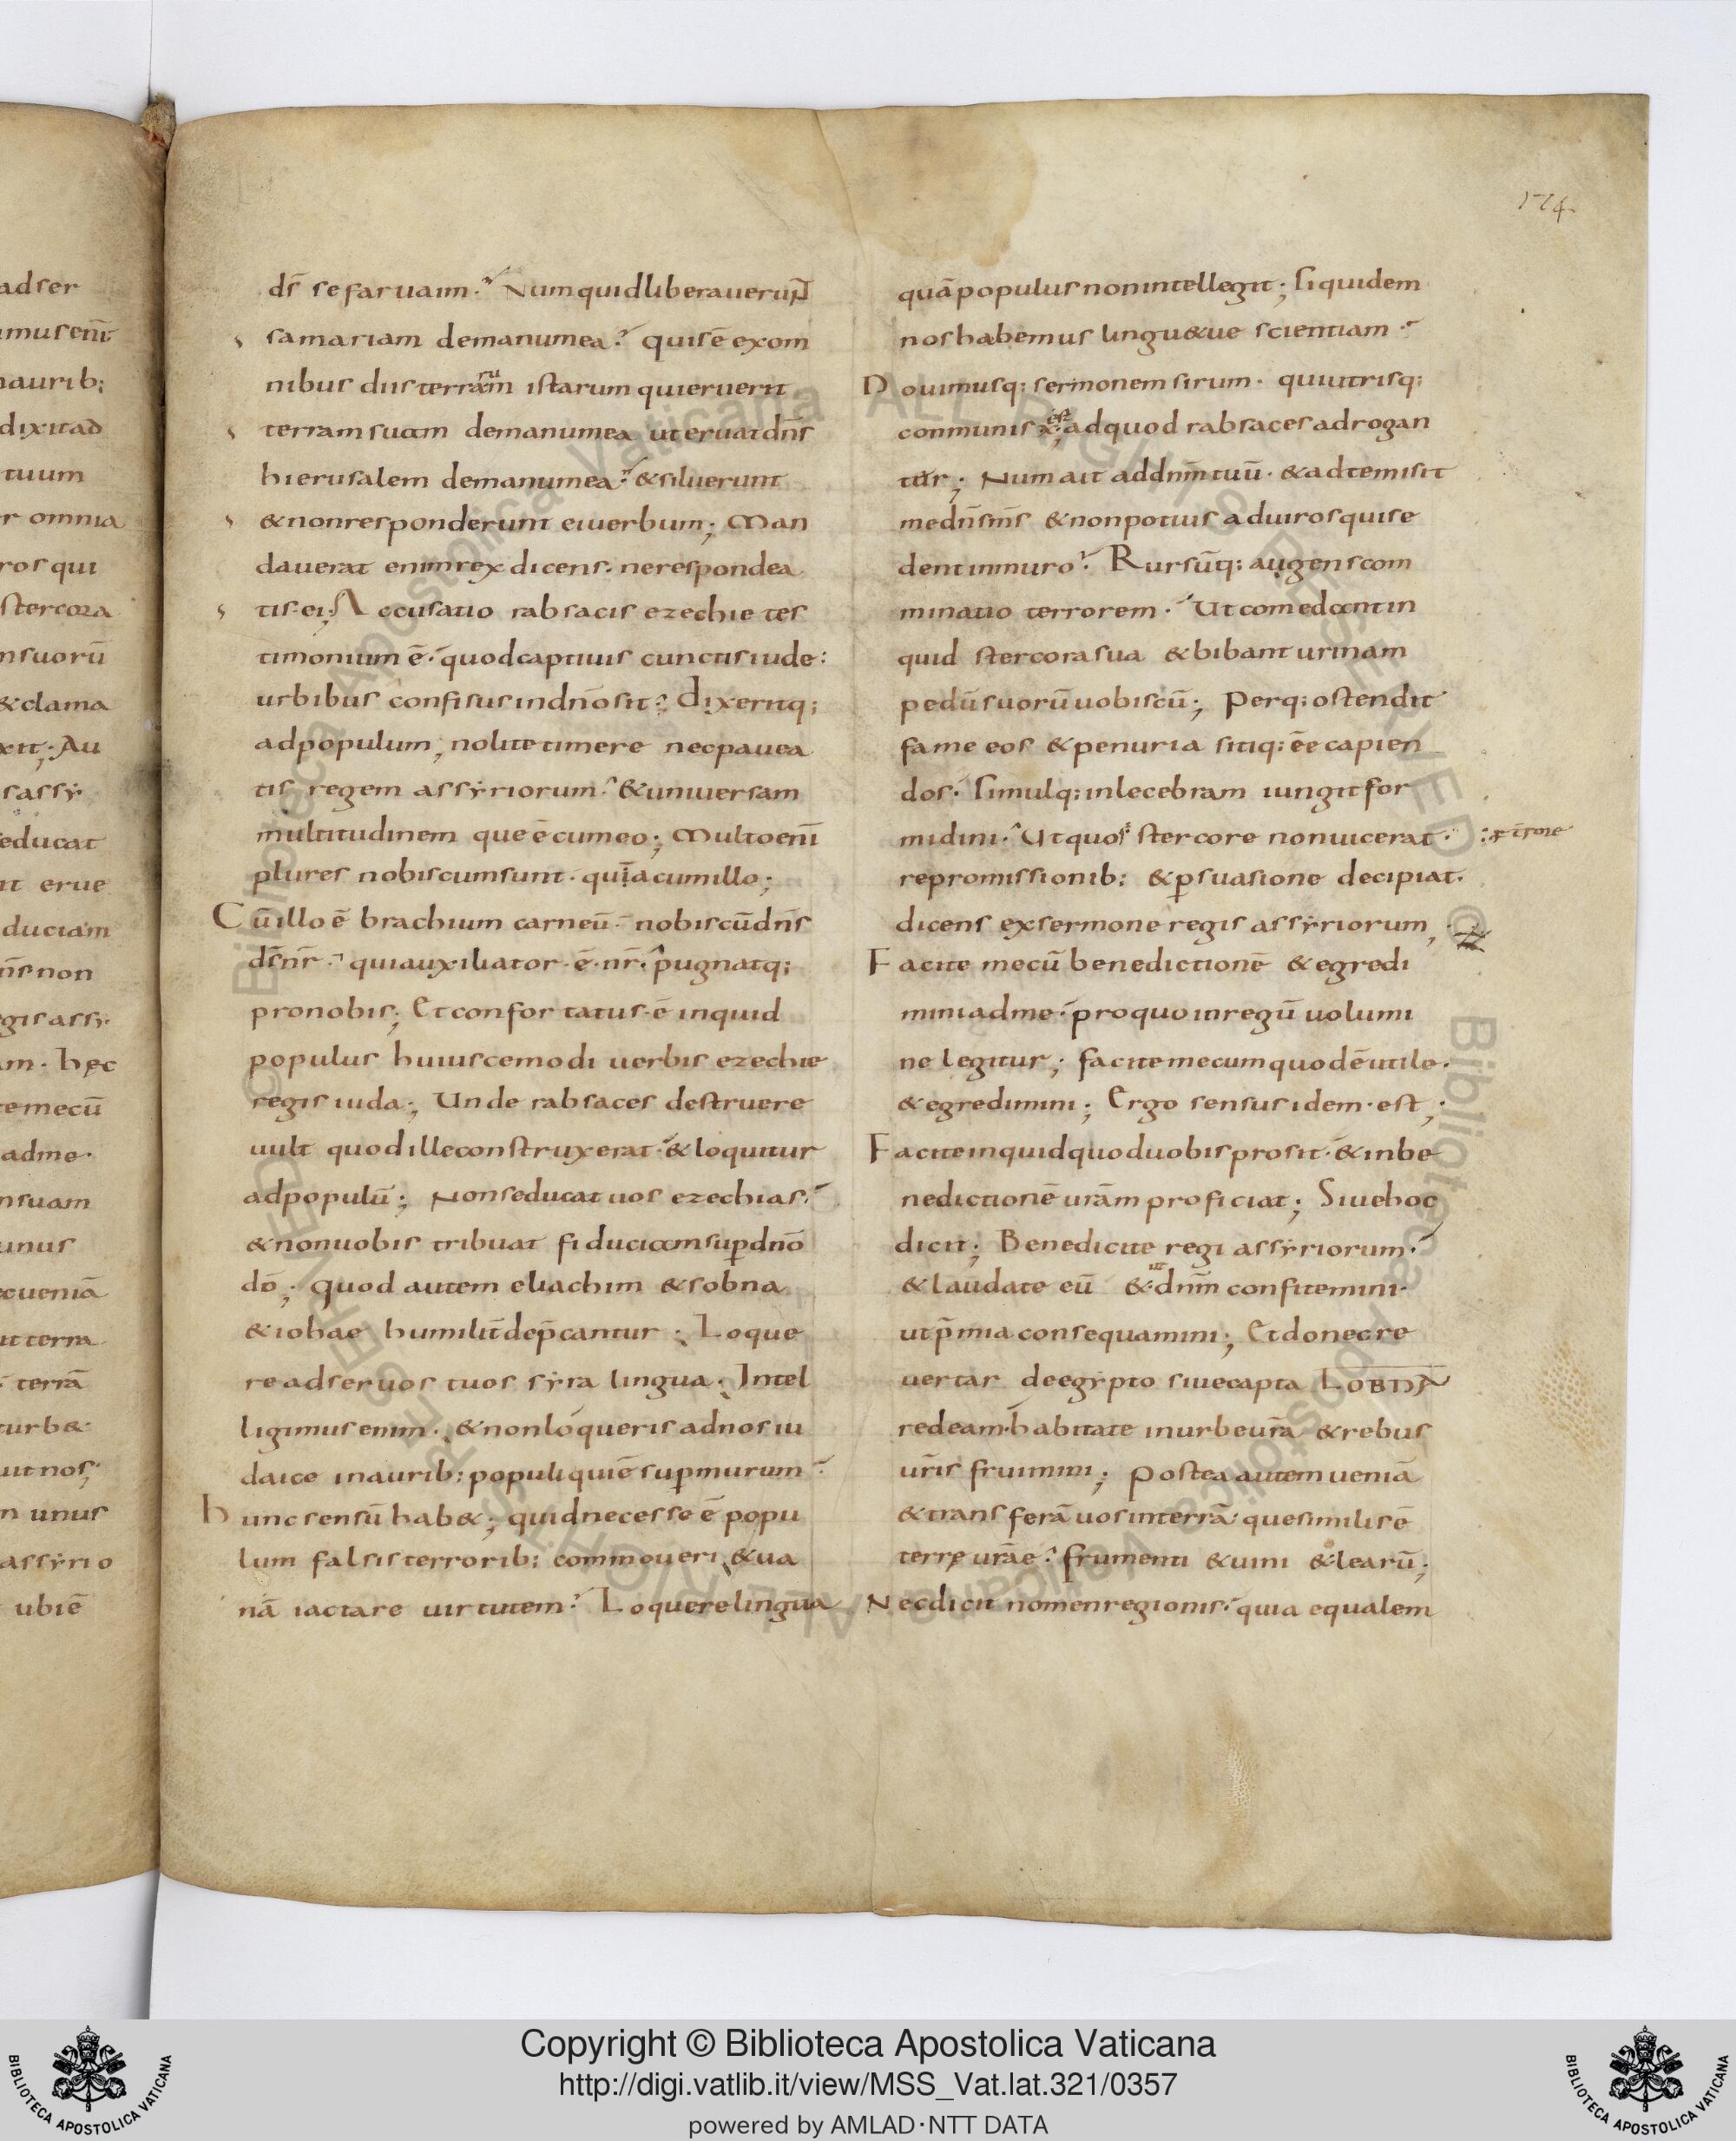 adser
musenī
naurib;
dixitad
tuum
r omnia
ros qui
stercora
nsuorū
&clama
xit; Au
sassy·
educat
it erue
duciam
n̄s non
egis assy·
am· hęc
temecū
adme·
nsuam
unus
ecueniā
ut terra
terrā
urb&
uit nos;
n unus
assyrio
ubiē
174·
ds̄ sefaruaim· Numquidliberauerunt
samariam demanumea? quisē exom
nibus diis terraru istarum quieruerit
terram suam demanumea uteruatdn̄s
hierusalem demanumea? &siluerunt
&nonresponderunt eiuerbum; Man
dauerat enimrex dicens· nerespondea
tis ei; Accusatio rabsacis ezechie tes
timonium ē· quodcaptiuis cunctisiude:
urbibus confisusindn̄osit; dixeritq;
adpopulum, nolitetimere necpauea
tis regem assyriorum· &uniuersam
multitudinem que ē cumeo; Multoenī
plures nobiscumsunt· quīacumillo;
Cūilloē brachium carneū· nobiscūdn̄s
ds̄nr̄· quiauxiliator·ē·nr̄· pugnatq;
pronobis; Etconfortatus·ē inquid
populus huiuscemodi uerbis ezechie
regis iuda; Unde rabsaces destruere
uult quodilleconstruxerat· &loquitur
adpopulū; Nonseducat uos ezechias·
&nonuobis tribuat fiduciamsup̄dn̄o
dō; quod autem eliachim &sobna
&iohae humilit̄dep̄cantur; Loque
readseruos tuos syra lingua· Intel
ligimusenim· &nonloqueris adnosiu
daice inaurib; populiquiē sup̄murum?
hunc sensū hab&; quidnecesse ē popu
lum falsisterrorib; commoueri, &ua
nā iactare uirtutem? Loquerelingua
quāpopulusnonintellegit; siquidem
noshabemus lingu&ue scientiam·
Nouimusq; sermonem sirum· quiutrisq;
communis est; adquod rabsacesadrogan
ter; Num ait addnm̄tuū· &adtemisit
medn̄sm̄s &nonpotius aduirosquise
dentinmuro? Rursūq; augenscom
minatio terrorem· Utcomedantin
quid stercorasua &bibanturinam
pedūsuorūuobiscū; Perq; ostendit
fame eos &penuria sitiq; ēe capien
dos· simulq; inlecebram iungitfor
midini· Utquos stercore nonuicerat·
repromissionib; &p̄suasione decipiat·
dicens exsermone regis assyriorum,
Facite mecū benedictionē &egredi
miniadme· proquoinregū uolumi
ne legitur; facitemecumquodēutile·
&egredimini; Ergo sensusidem·est;
Faciteinquidquoduobisprosit· &inbe
nedictionē urām proficiat; Siuehoc
dicit; Benedicite regi assyriorum·
&laudate eū &dnm̄ confitemini·
utp̄mia consequamini; Etdonecre
uertar deegypto siuecapta LOBNA
redeam· habitate inurbeurā &rebus
urīs fruimini; postea autem ueniā
&transferā uosinterrā quesimilisē
terrę urāe· frumenti &uini &learū;
Necdicit nomenregionis· quia equalem
Copyright © Biblioteca Apostolica Vaticana
http://digi.vatlib.it/view/MSS_Vat.lat.321/0357
powered by AMLAD·NTT DATA
BIBLIOTECA APOSTOLICA VATICANA
BIBLIOTECA APOSTOLICA VATICANA